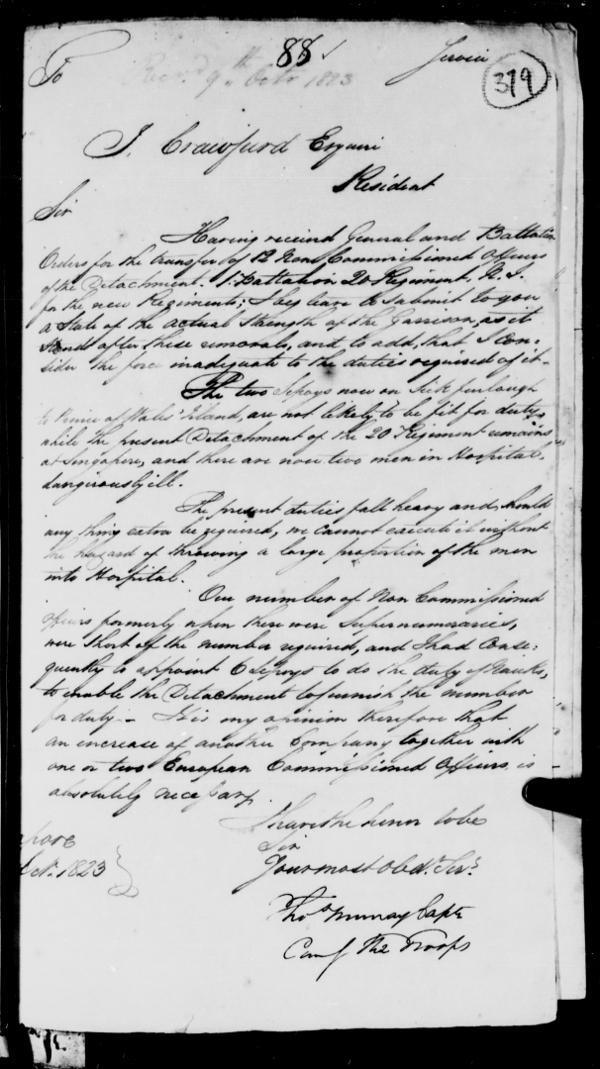 88
379
To
Rec.d 9th Octr 1823
J. Crawfurd Esquire
Resident
Sir
Having received General and Battalion
Orders for the transfer of 12 Non Commissioned Officers
of the Detachment 1 Battalion 20 Regiment, N.I.
for the new Regiments; I beg leave to submit to you
a State of the actual strength of the Garrison, as it
stands after these removals, and to add, that I con-
sider the force inadequate to the duties required of it -
The two Sepoys now on Sick furlough
to Prince of Wales Island, are not likely to be fit for duty
while the present Detachment of the 20 Regiment remains
at Singapore, and there are now two men in Hospital
dangerously ill.
The present duties fall heavy and should
any thing extra be required, we cannot execute it without
the hazard of throwing a large proportion of the men
into Hospital.
Our number of Non Commissioned
officers formerly when there were Supernumeraries,
were short of the number required, and I had conse:
quently to appoint 6 Sepoys to do the duty of Naicks,
to enable the Detachment to furnish the number
for duty - It is my opinion therefore that
an increase of another Company together with
one or two European Commissioned Officers is
absolutely necessary.
I have the honor to be
Sir
Your most Obedt. Servt.
Thos Murray Captn
Comg The Troops
apore
Octr. 1823